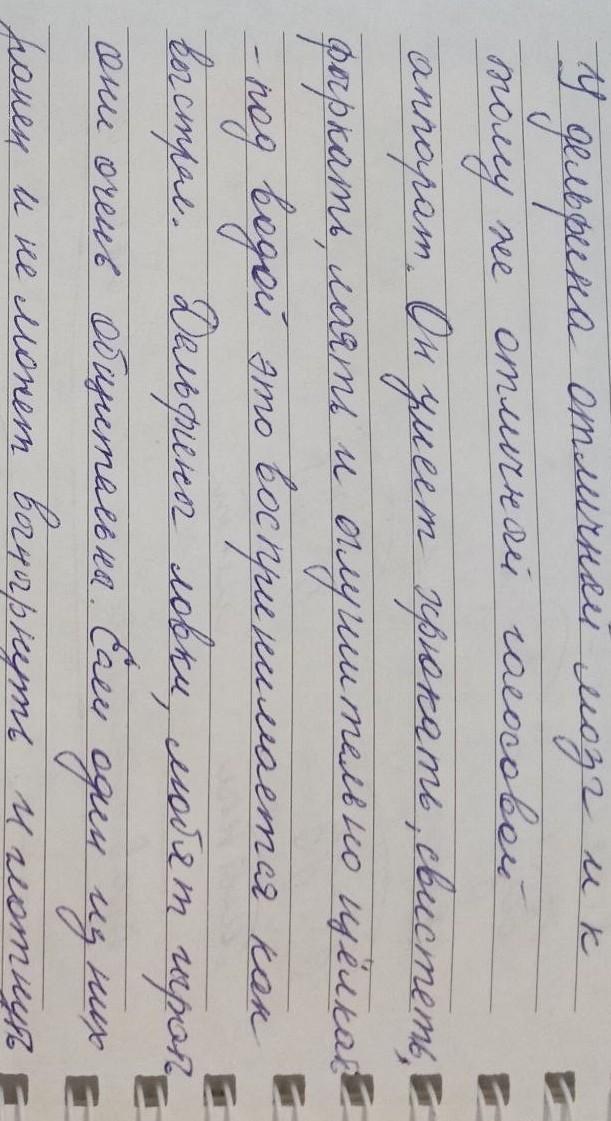 У дельфина отличный мозг и к
тому же отличный голосовой
аппарат. Он умеет хрюкать, свистеть,
фыркать, лаять и оглушительно щёлкать
- под водой это воспринимается как
выстрел. Дельфины ловки, любят играть
они очень общительны. Если один из них
ранен и не может вынырнуть и глотнуть